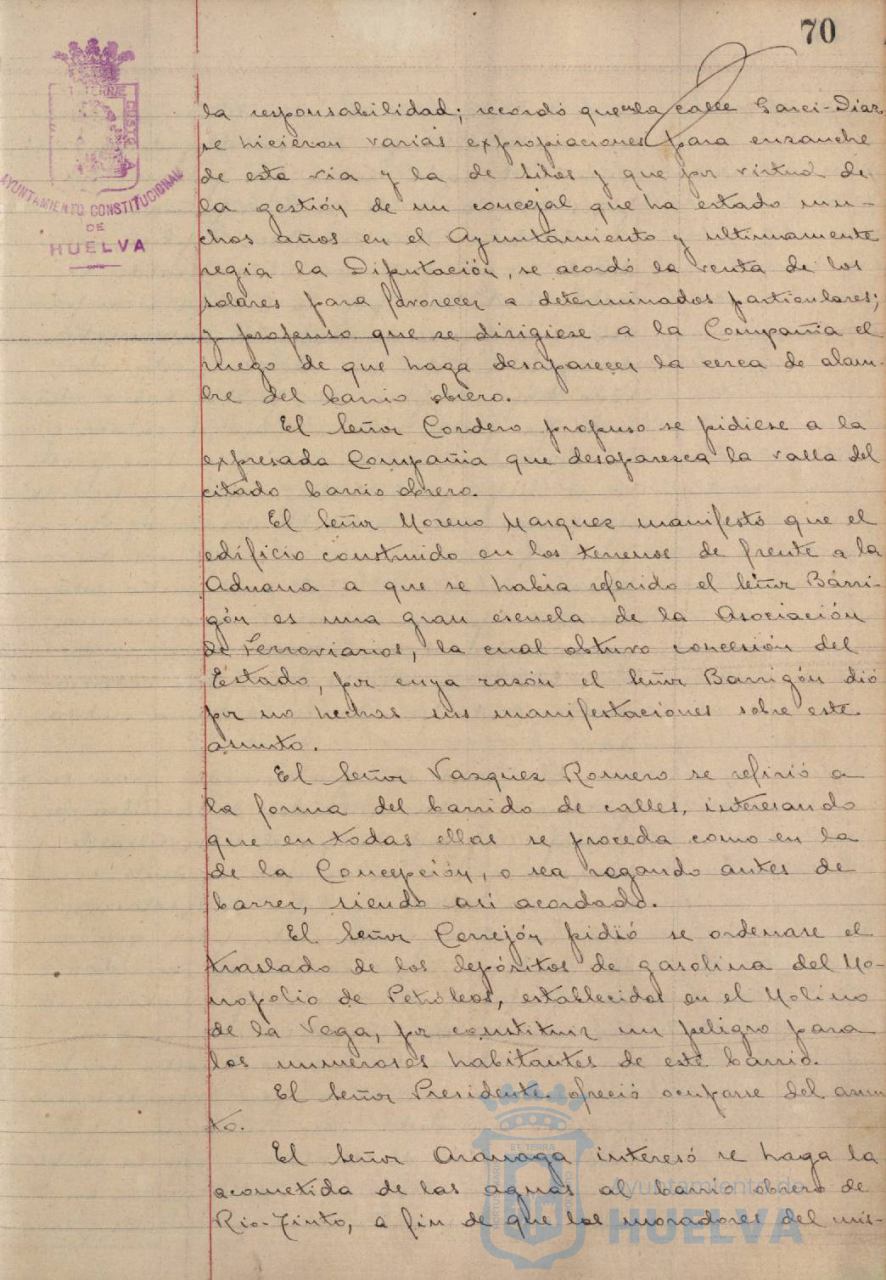 70
TERRÆ CUSTODIA
AYUNTAMIENTO CONSTITUCIONAL
DE
HUELVA
la responsabilidad; recordó que en la calle Garci-Diaz
se hicieron varias expropiaciones para ensanche
de esta via y la de Silos y que por virtud de
la gestión de un concejal que ha estado mu-
chos años en el Ayuntamiento y ultimamente
regia la Diputación, se acordó la venta de los
solares para favorecer a determinados particulares;
y propuso que se dirigiese a la Compañia el
ruego de que haga desaparecer la cerca de alam-
bre del barrio obrero.
El Señor Cordero propuso se pidiese a la
expresada Compañia que desaparezca la valla del
citado barrio obrero.
El Señor Moreno Marquez manifestó que el
edificio construido en los terrenos de frente a la
Aduana a que se habia referido el Señor Barri-
gón es una gran escuela de la Asociación
de Ferroviarios, la cual obtuvo concesión del
Estado, por cuya razón el Señor Barrigón dió
por no hechas sus manifestaciones sobre este
asunto.
El Señor Vazquez Romero se refirió a
la forma del barrido de calles, interesando
que en todas ellas se proceda como en la
de la Concepción, o sea regando antes de
barrer, siendo asi acordado.
El Señor Cerrejón pidió se ordenase el
traslado de los depósitos de gasolina del Mo-
nopolio de Petróleos, establecidos en el Molino
de la Vega, por constituir un peligro para
los numerosos habitantes de este barrio.
El Señor Presidente ofreció ocuparse del asun-
to.
El Señor Aranaga interesó se haga la
acometida de las aguas al barrio obrero de
Rio-Tinto, a fin de que los moradores del mis-
EL TERRA
Ayuntamiento de
HUELVA